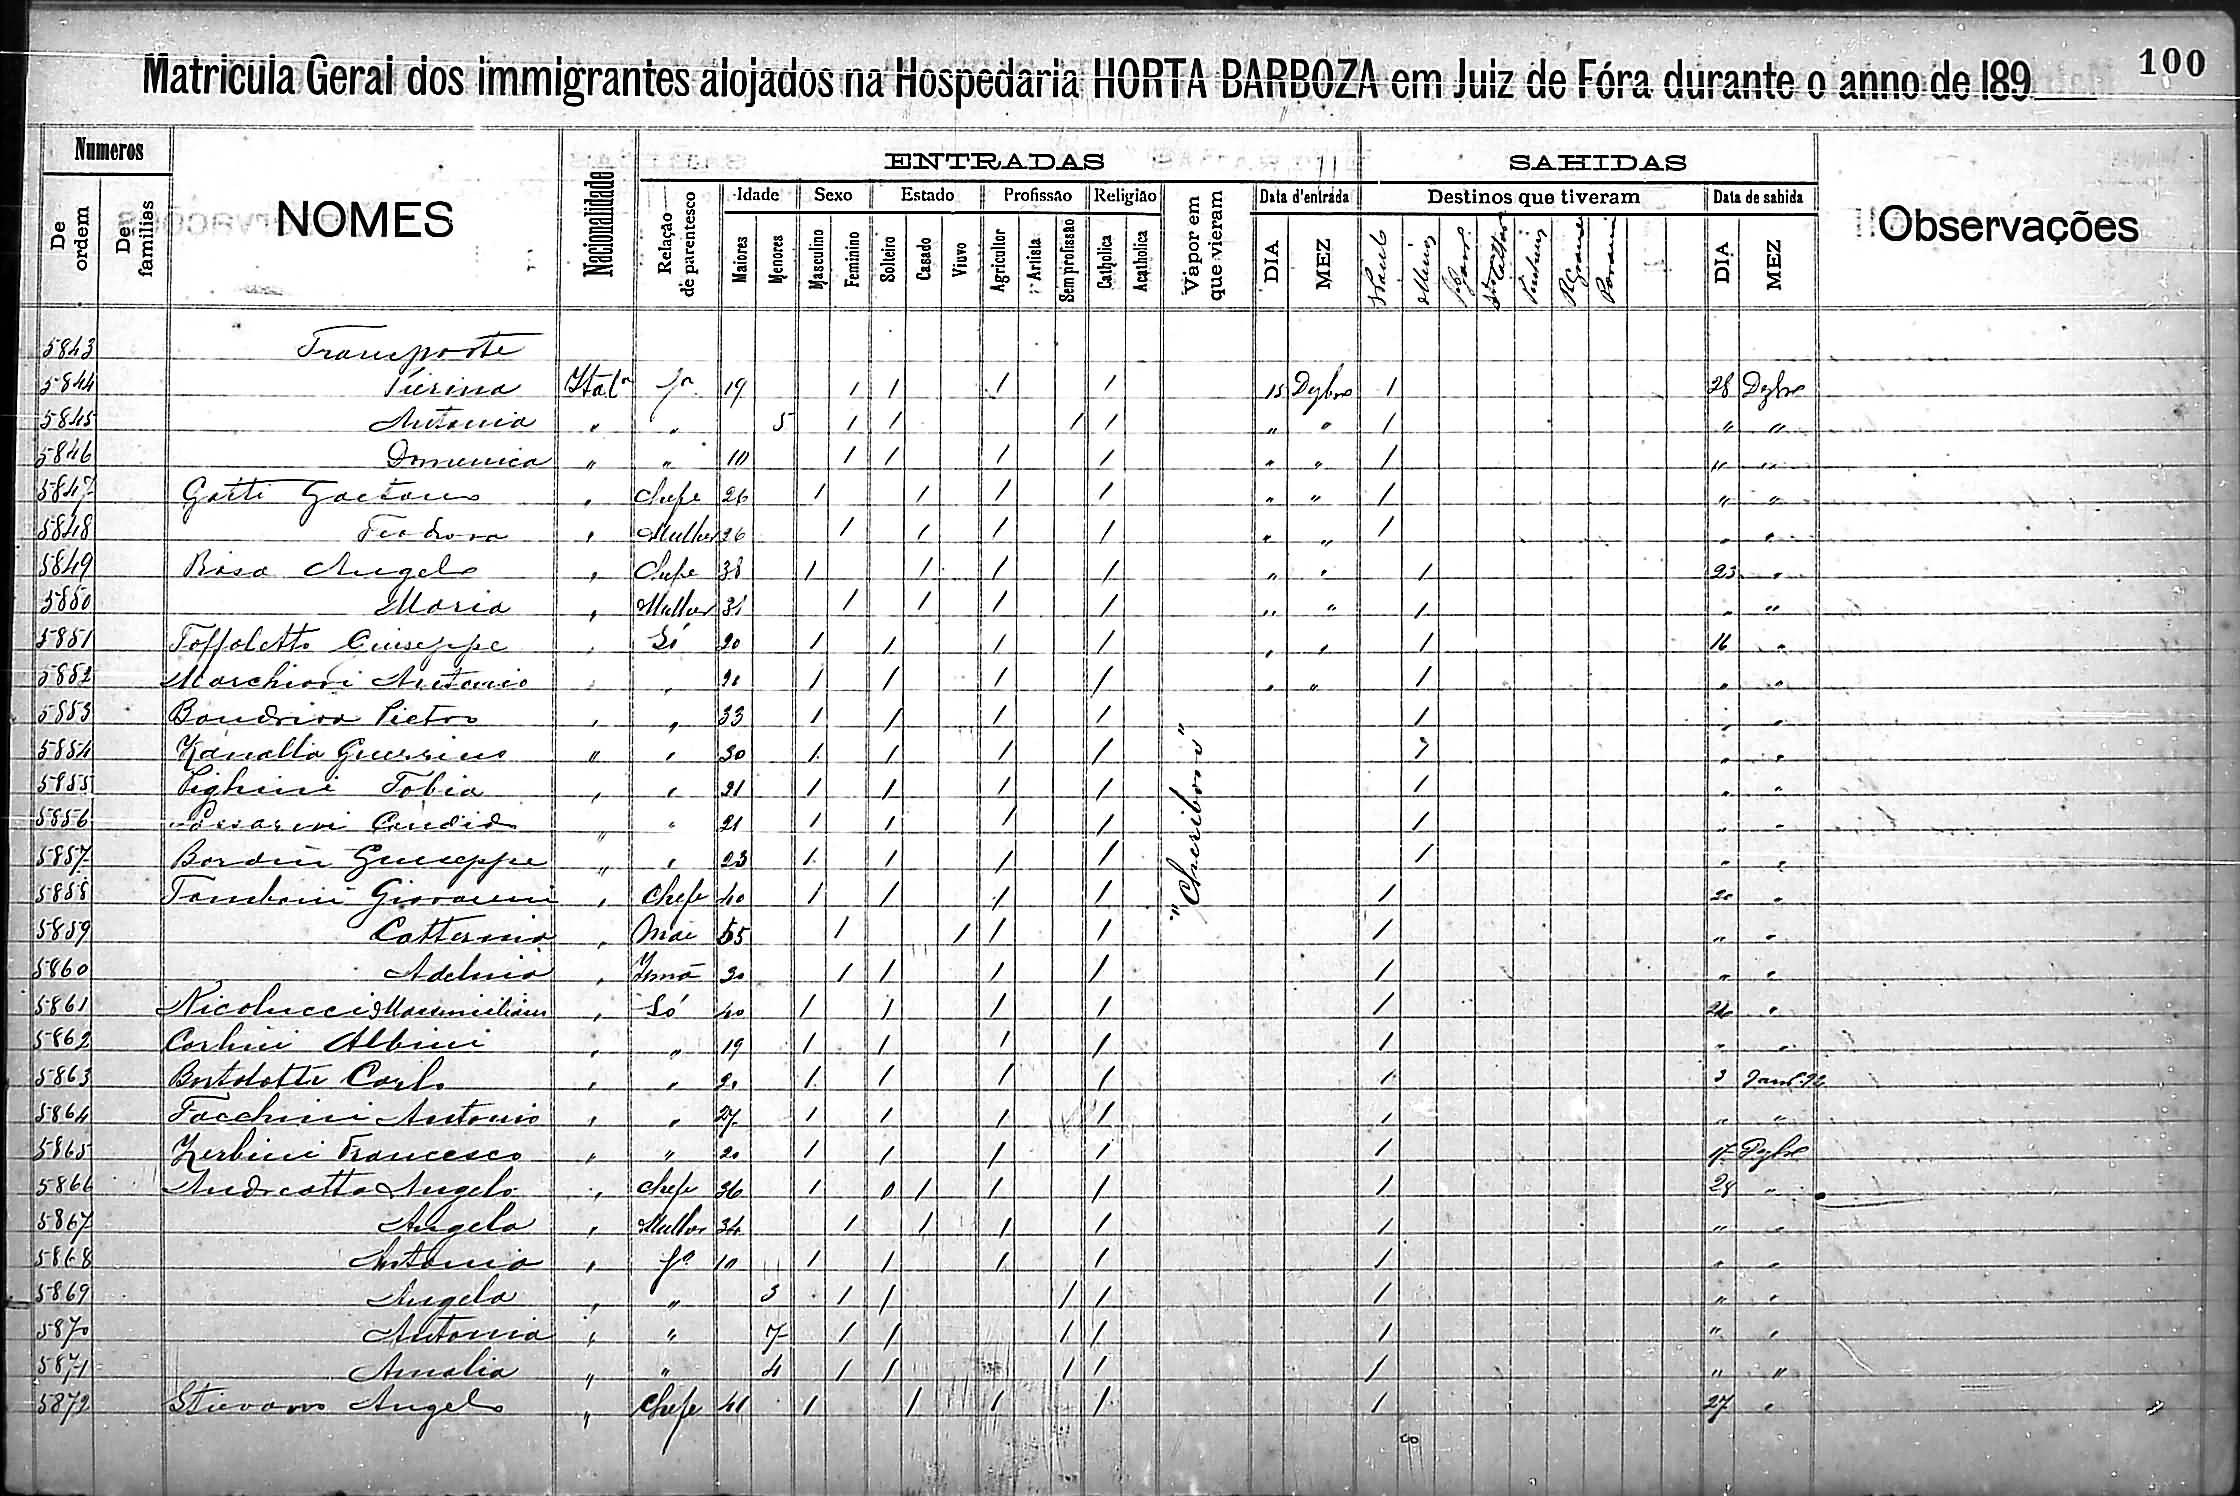 100
Matricula Geral dos immigrantes alojados na Hospedaria HORTA BARBOZA em Juiz de Fóra durante o anno de 189
Numeros NOMES Nacionalidade ENTRADAS SAHIDAS Observações
De ordem De familias Relação de parentesco Idade Sexo Estado Profissão Religião Vapor em que vieram Data d'entrada Destinos que tiveram Data de sahida
Maiores Menores Masculino Feminino Solteiro Casado Viuvo Agricultor Artista Sem profissão Catholica Acatholica DIA MEZ S Paulo Minas DIA MEZ
5843 Transporte
5844 Pierina Ital.ª fª 19 1 1 1 1 15 Dezbro 1 28 Dezbro
5845 Antonia " " 5 1 1 1 1 " " 1 " "
5846 Domenica " " 10 1 1 1 1 " " 1 " "
5847 Gatti Gaetano " Chefe 26 1 1 1 1 " " 1 " "
5848 Teodora " Mulher 26 1 1 1 1 " " 1 " "
5849 Rosa Angelo " Chefe 38 1 1 1 1 " " 1 23 "
5850 Maria " Mulher 31 1 1 1 1 " " 1 " "
5851 Toffoletto Giuseppe " Só 20 1 1 1 1 " " 1 16 "
5852 Marchiori Antonio " " 1 1 1 1 " " 1 " "
5853 Pietro " " 33 1 1 1 1 1 " "
5854 Guerrino " " 30 1 1 1 1 " "
5855 Pighini Tobia " " 21 1 1 1 1 1 " "
5856 Candido " " 21 1 1 1 1 1 " "
5857 Bordin Giuseppe " " 23 1 1 1 1 1 " "
"Cheribon"
5858 Tamboni Giovanni " Chefe 40 1 1 1 1 1 20 "
5859 Catterina " Mãe 55 1 1 1 1 1 " "
5860 Adelina " Irmã 30 1 1 1 1 1 " "
5861 Nicolucci Massimiliano " Só 40 1 1 1 1 1 "
5862 Albini " " 19 1 1 1 1 1 " "
5863 Bortolotti Carlo " " 1 1 1 1 1 3 Janº 92
5864 Facchini Antonio " " 27 1 1 1 1 1 " "
5865 Zerbini Francesco " " 20 1 1 1 1 1 17 Dezbro
5866 Andreatta Angelo " Chefe 36 1 1 1 1 1 28 "
5867 Angela " Mulher 34 1 1 1 1 1 " "
5868 Antonio " fº 10 1 1 1 1 1 " "
5869 Angela " " 3 1 1 1 1 1 " "
5870 Antonia " " 7 1 1 1 1 1 " "
5871 Amalia " " 4 1 1 1 1 1 " "
5872 Stievano Angelo " Chefe 41 1 1 1 1 1 27 "